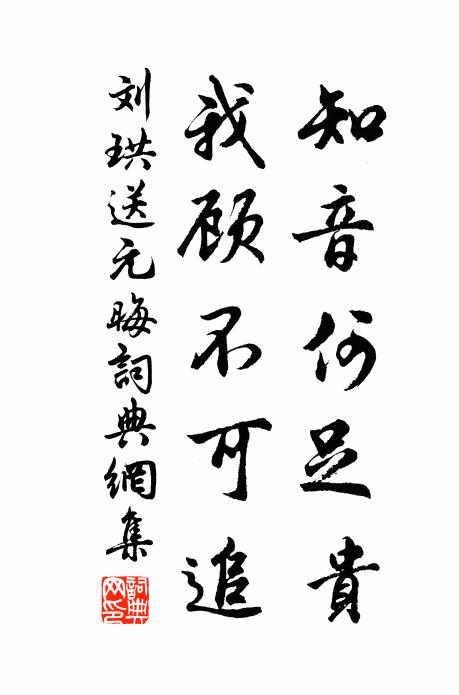 知音何足貴
我顾不可追
刘珙送元晦詞典網集
詞典网印